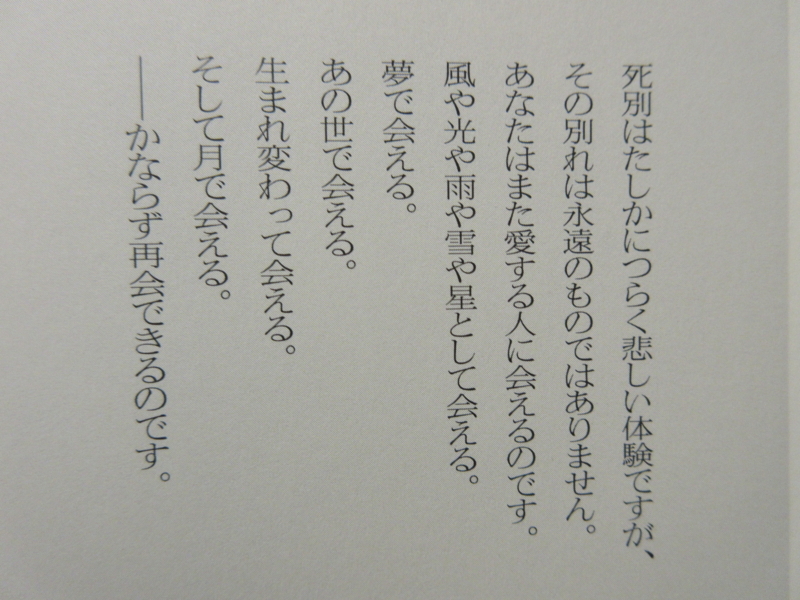 死別はたしかにつらく悲しい体験ですが、
その別れは永遠のものではありません。
あなたはまた愛する人に会えるのです。
風や光や雨や雪や星として会える。
夢で会える。
あの世で会える。
生まれ変わって会える。
そして月で会える。
――かならず再会できるのです。